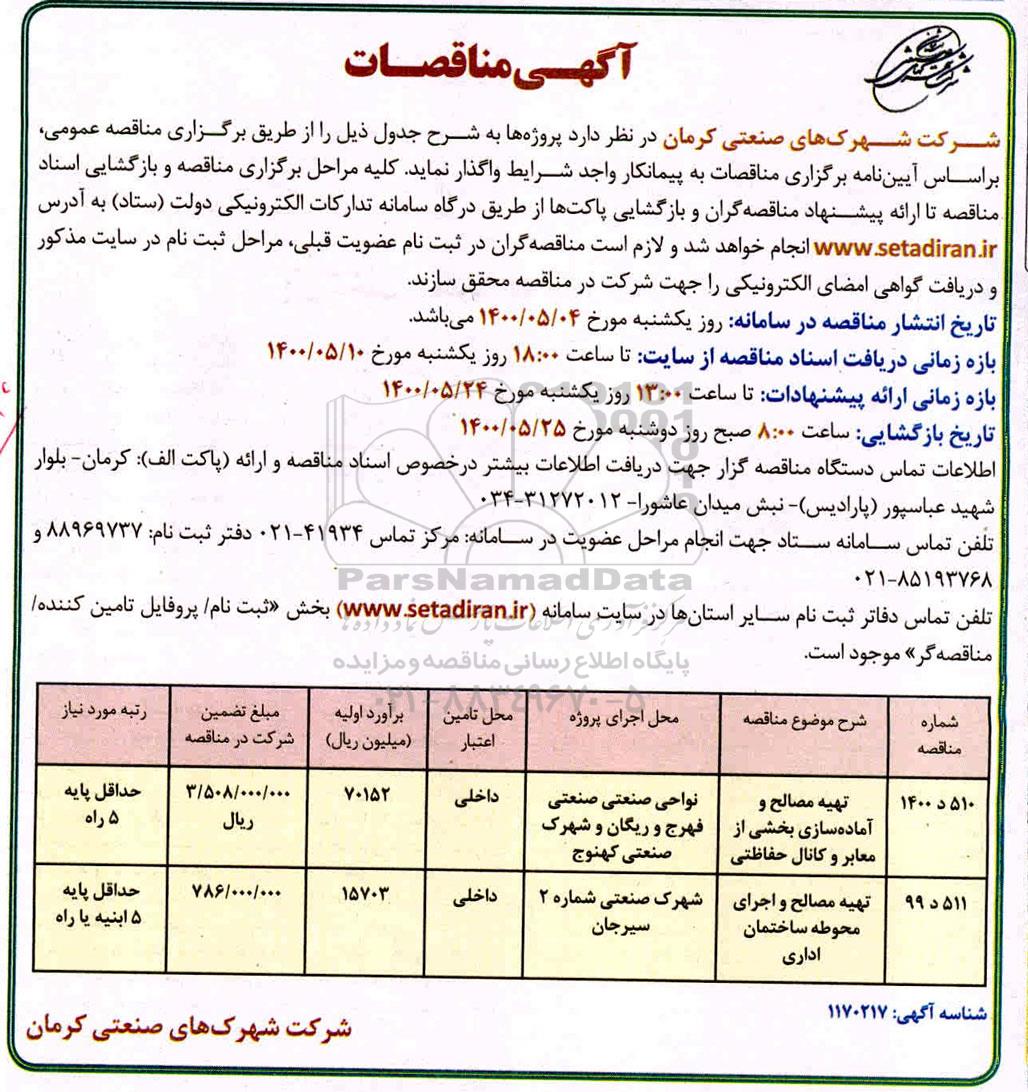 آگهی مناقصات
شرکت شهرک‌های صنعتی کرمان در نظر دارد پروژه‌ها به شرح جدول ذیل را از طریق برگزاری مناقصه عمومی،
براساس آیین‌نامه برگزاری مناقصات به پیمانکار واجد شرایط واگذار نماید. کلیه مراحل برگزاری مناقصه و بازگشایی اسناد
مناقصه تا ارائه پیشنهاد مناقصه‌گران و بازگشایی پاکت‌ها از طریق درگاه سامانه تدارکات الکترونیکی دولت (ستاد) به آدرس
www.setadiran.ir انجام خواهد شد و لازم است مناقصه‌گران در ثبت نام عضویت قبلی، مراحل ثبت نام در سایت مذکور
و دریافت گواهی امضای الکترونیکی را جهت شرکت در مناقصه محقق سازند.
تاریخ انتشار مناقصه در سامانه: روز یکشنبه مورخ ۱۴۰۰/۰۵/۰۴ می‌باشد.
بازه زمانی دریافت اسناد مناقصه از سایت: تا ساعت ۱۸:۰۰ روز یکشنبه مورخ ۱۴۰۰/۰۵/۱۰
بازه زمانی ارائه پیشنهادات: تا ساعت ۱۳:۰۰ روز یکشنبه مورخ ۱۴۰۰/۰۵/۲۴
تاریخ بازگشایی: ساعت ۸:۰۰ صبح روز دوشنبه مورخ ۱۴۰۰/۰۵/۲۵
اطلاعات تماس دستگاه مناقصه گزار جهت دریافت اطلاعات بیشتر درخصوص اسناد مناقصه و ارائه (پاکت الف): کرمان- بلوار
شهید عباسپور (پارادیس)- نبش میدان عاشورا- ۳۱۲۷۲۰۱۲-۰۳۴
تلفن تماس سامانه ستاد جهت انجام مراحل عضویت در سامانه: مرکز تماس ۴۱۹۳۴-۰۲۱ دفتر ثبت نام: ۸۸۹۶۹۷۳۷ و
۸۵۱۹۳۷۶۸-۰۲۱
ParsNamadData
تلفن تماس دفاتر ثبت نام سایر استان‌ها در سایت سامانه (www.setadiran.ir) بخش «ثبت نام/ پروفایل تامین کننده/
مناقصه‌گر» موجود است.
پایگاه اطلاع رسانی مناقصه و مزایده
۰۲۱-۸۸۳۴۹۶۷۰-۵
شماره مناقصه | شرح موضوع مناقصه | محل اجرای پروژه | محل تامین اعتبار | برآورد اولیه (میلیون ریال) | مبلغ تضمین شرکت در مناقصه | رتبه مورد نیاز
۵۱۰ د ۱۴۰۰ | تهیه مصالح و آماده‌سازی بخشی از معابر و کانال حفاظتی | نواحی صنعتی صنعتی فهرج و ریگان و شهرک صنعتی کهنوج | داخلی | ۷۰۱۵۲ | ۳/۵۰۸/۰۰۰/۰۰۰ ریال | حداقل پایه ۵ راه
۵۱۱ د ۹۹ | تهیه مصالح و اجرای محوطه ساختمان اداری | شهرک صنعتی شماره ۲ سیرجان | داخلی | ۱۵۷۰۳ | ۷۸۶/۰۰۰/۰۰۰ | حداقل پایه ۵ ابنیه یا راه
شناسه آگهی: ۱۱۷۰۲۱۷
شرکت شهرک‌های صنعتی کرمان